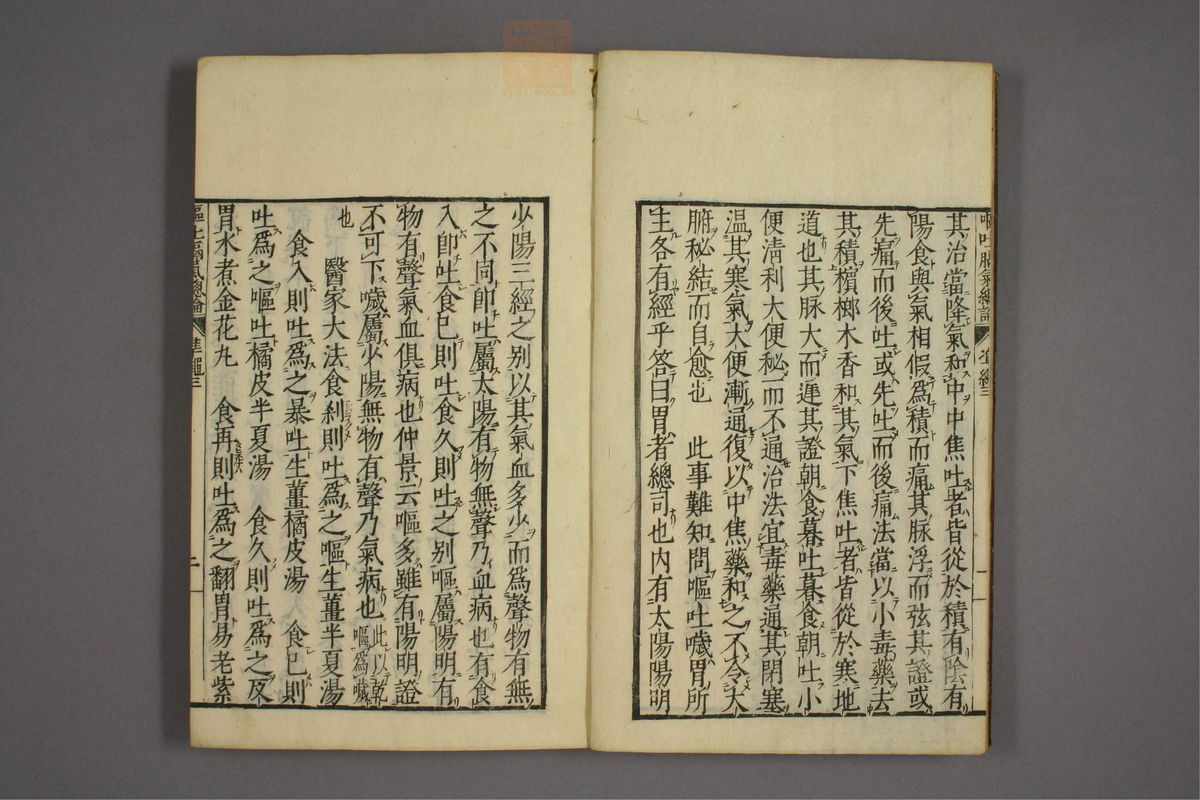 其治當降氣和中中焦吐者皆從於積有陰有
陽食與氣相假爲積而痛其脉浮而弦其證或
先痛而後吐或先吐而後痛法當以小毒藥去
其積檳榔木香和其氣下焦吐者皆從於寒地
道也其脉大而遲其證朝食暮吐暮食朝吐小
便清利大便秘而不通治法宜毒藥通其閉塞
温其寒氣大便漸通復以中焦藥和之不令大
腑秘結而自愈也 此事難知問嘔吐噦胃所
主各有經乎答曰胃者總司也内有太陽陽明
少陽三經之别以其氣血多少而爲聲物有無
之不同即吐屬太陽有物無聲乃血病也有食
入即吐食已則吐食久則吐之别嘔屬陽明有
物有聲氣血俱病也仲景云嘔多雖有陽明證
不可下噦屬少陽無物有聲乃氣病也此以乾嘔爲噦
也 醫家大法食刹則吐爲之嘔生薑半夏湯
食入則吐爲之暴吐生薑橘皮湯 食已則
吐爲之嘔吐橘皮半夏湯 食久則吐爲之反
胃水煮金花丸 食再則吐爲之翻胃易老紫